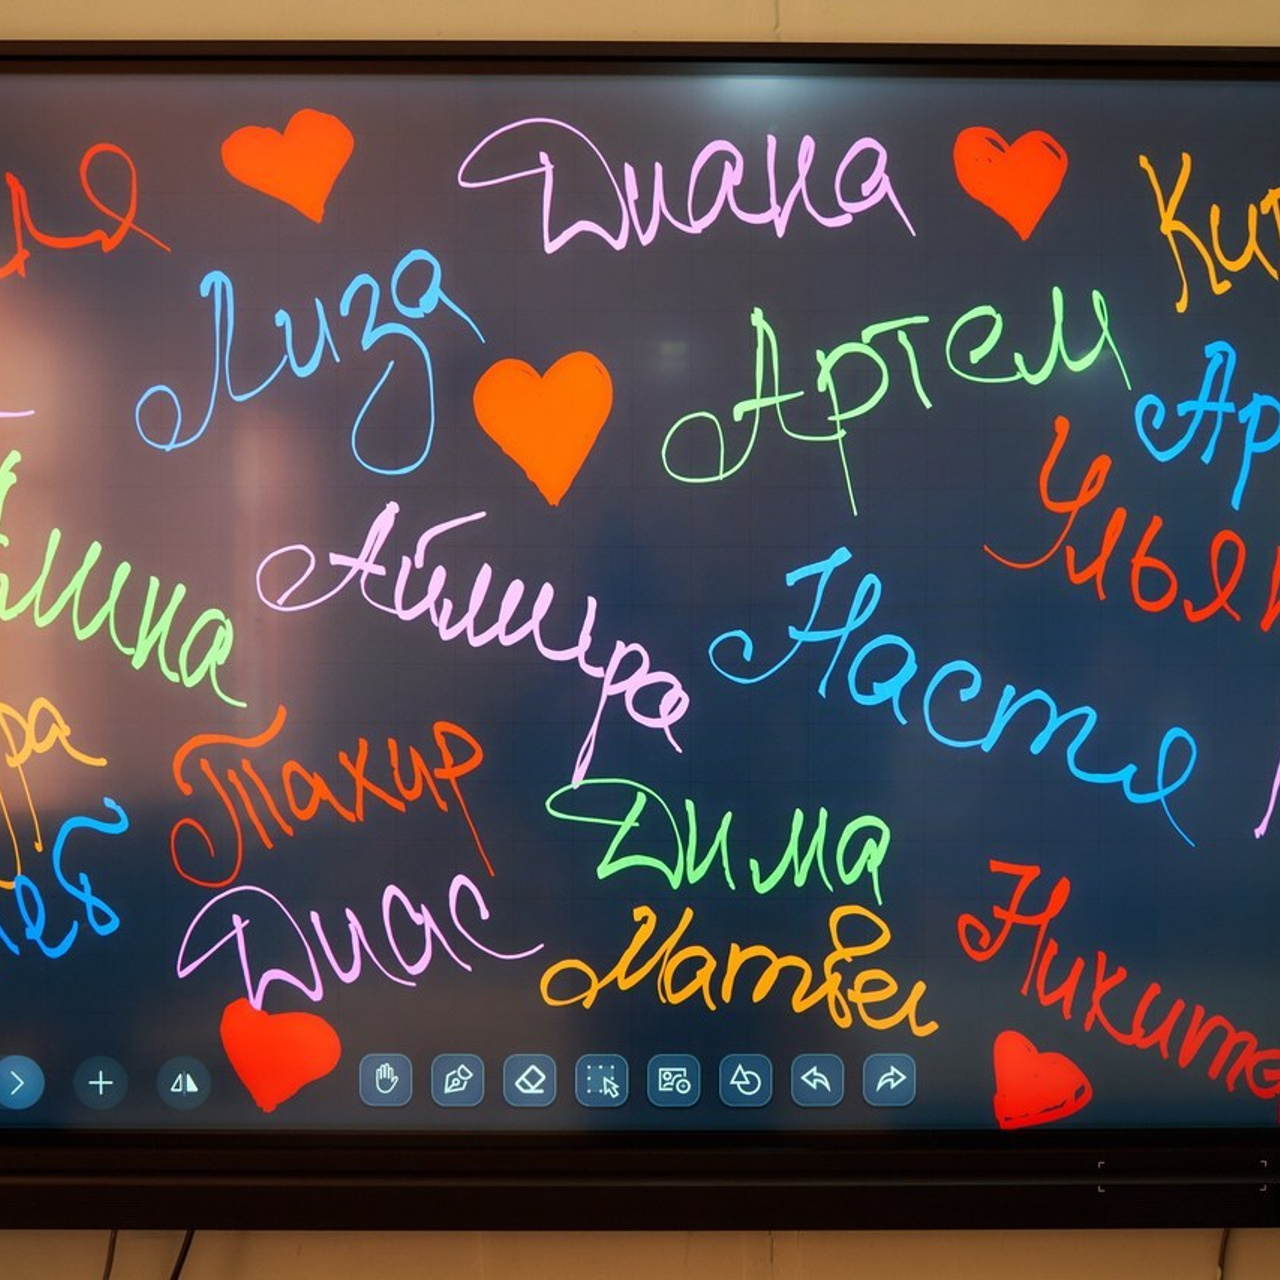 Диана
Лиза
Артем
Ар
Улья
Аймира
Настя
Тахир
Дима
Диас
Матвей
Никита